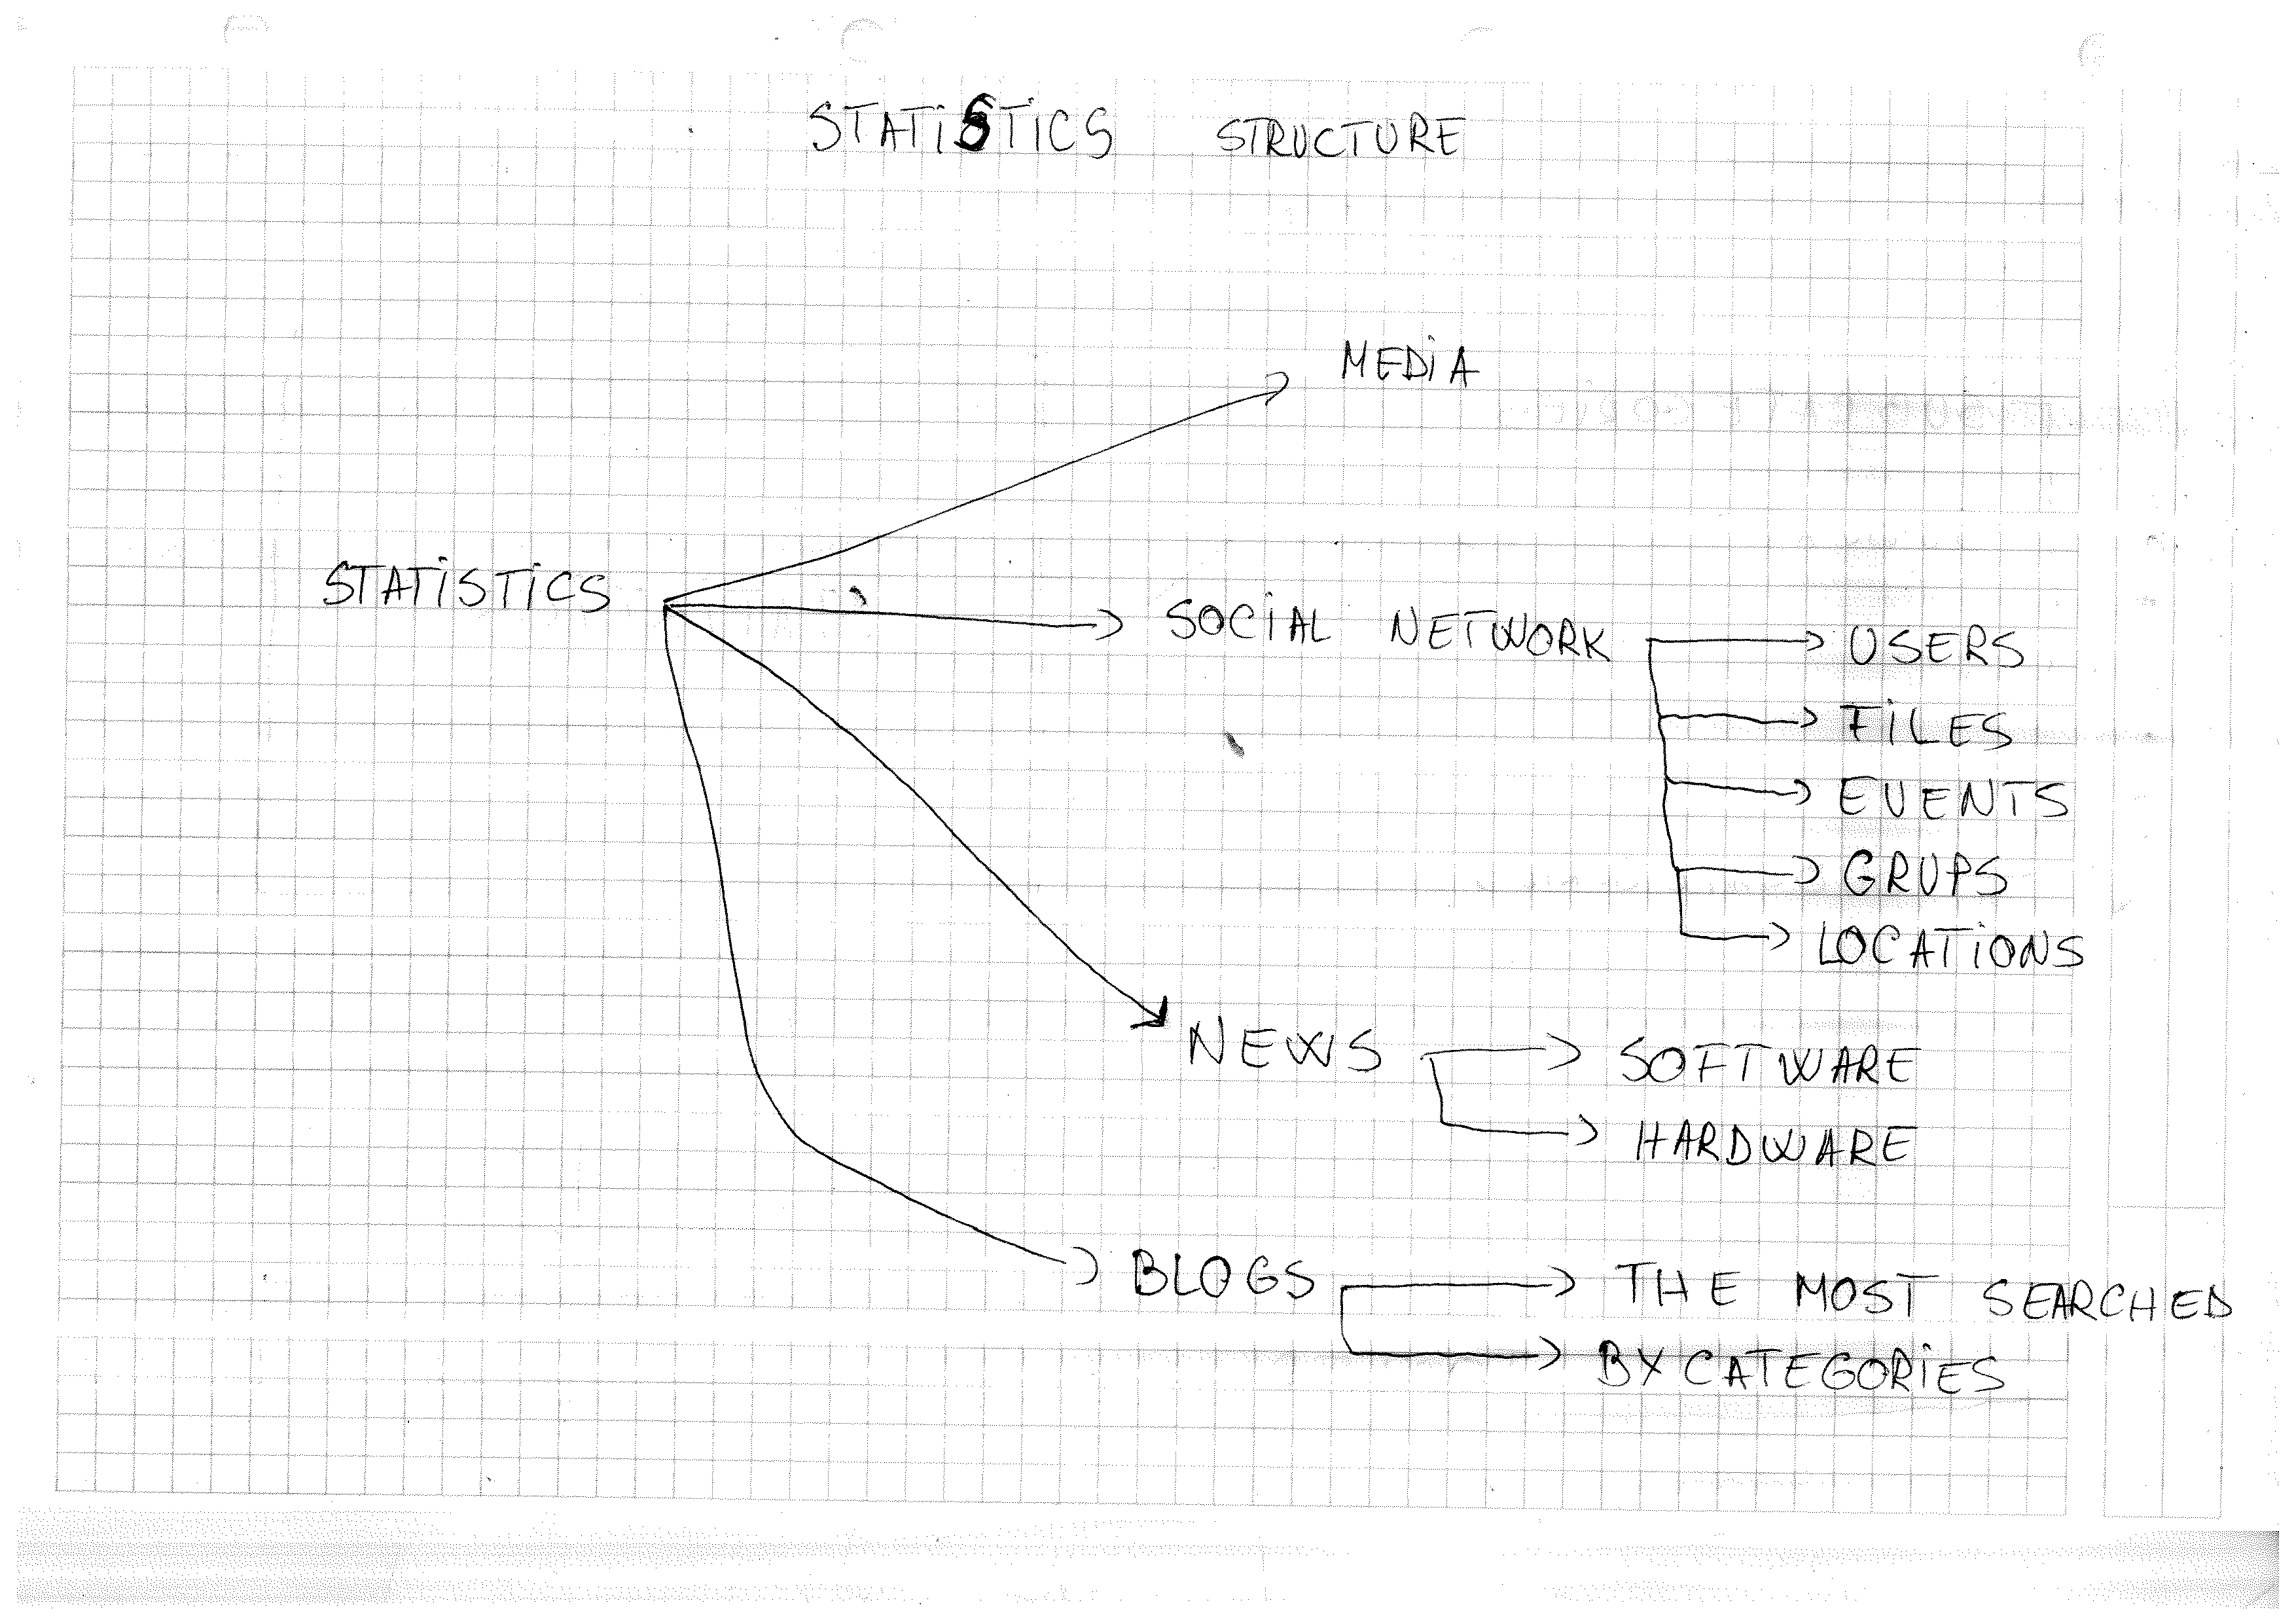 STATISTICS STRUCTURE
MEDIA
STATISTICS
SOCIAL NETWORK
USERS
FILES
EVENTS
GRUPS
LOCATIONS
NEWS
SOFTWARE
HARDWARE
BLOGS
THE MOST SEARCHED
BY CATEGORIES